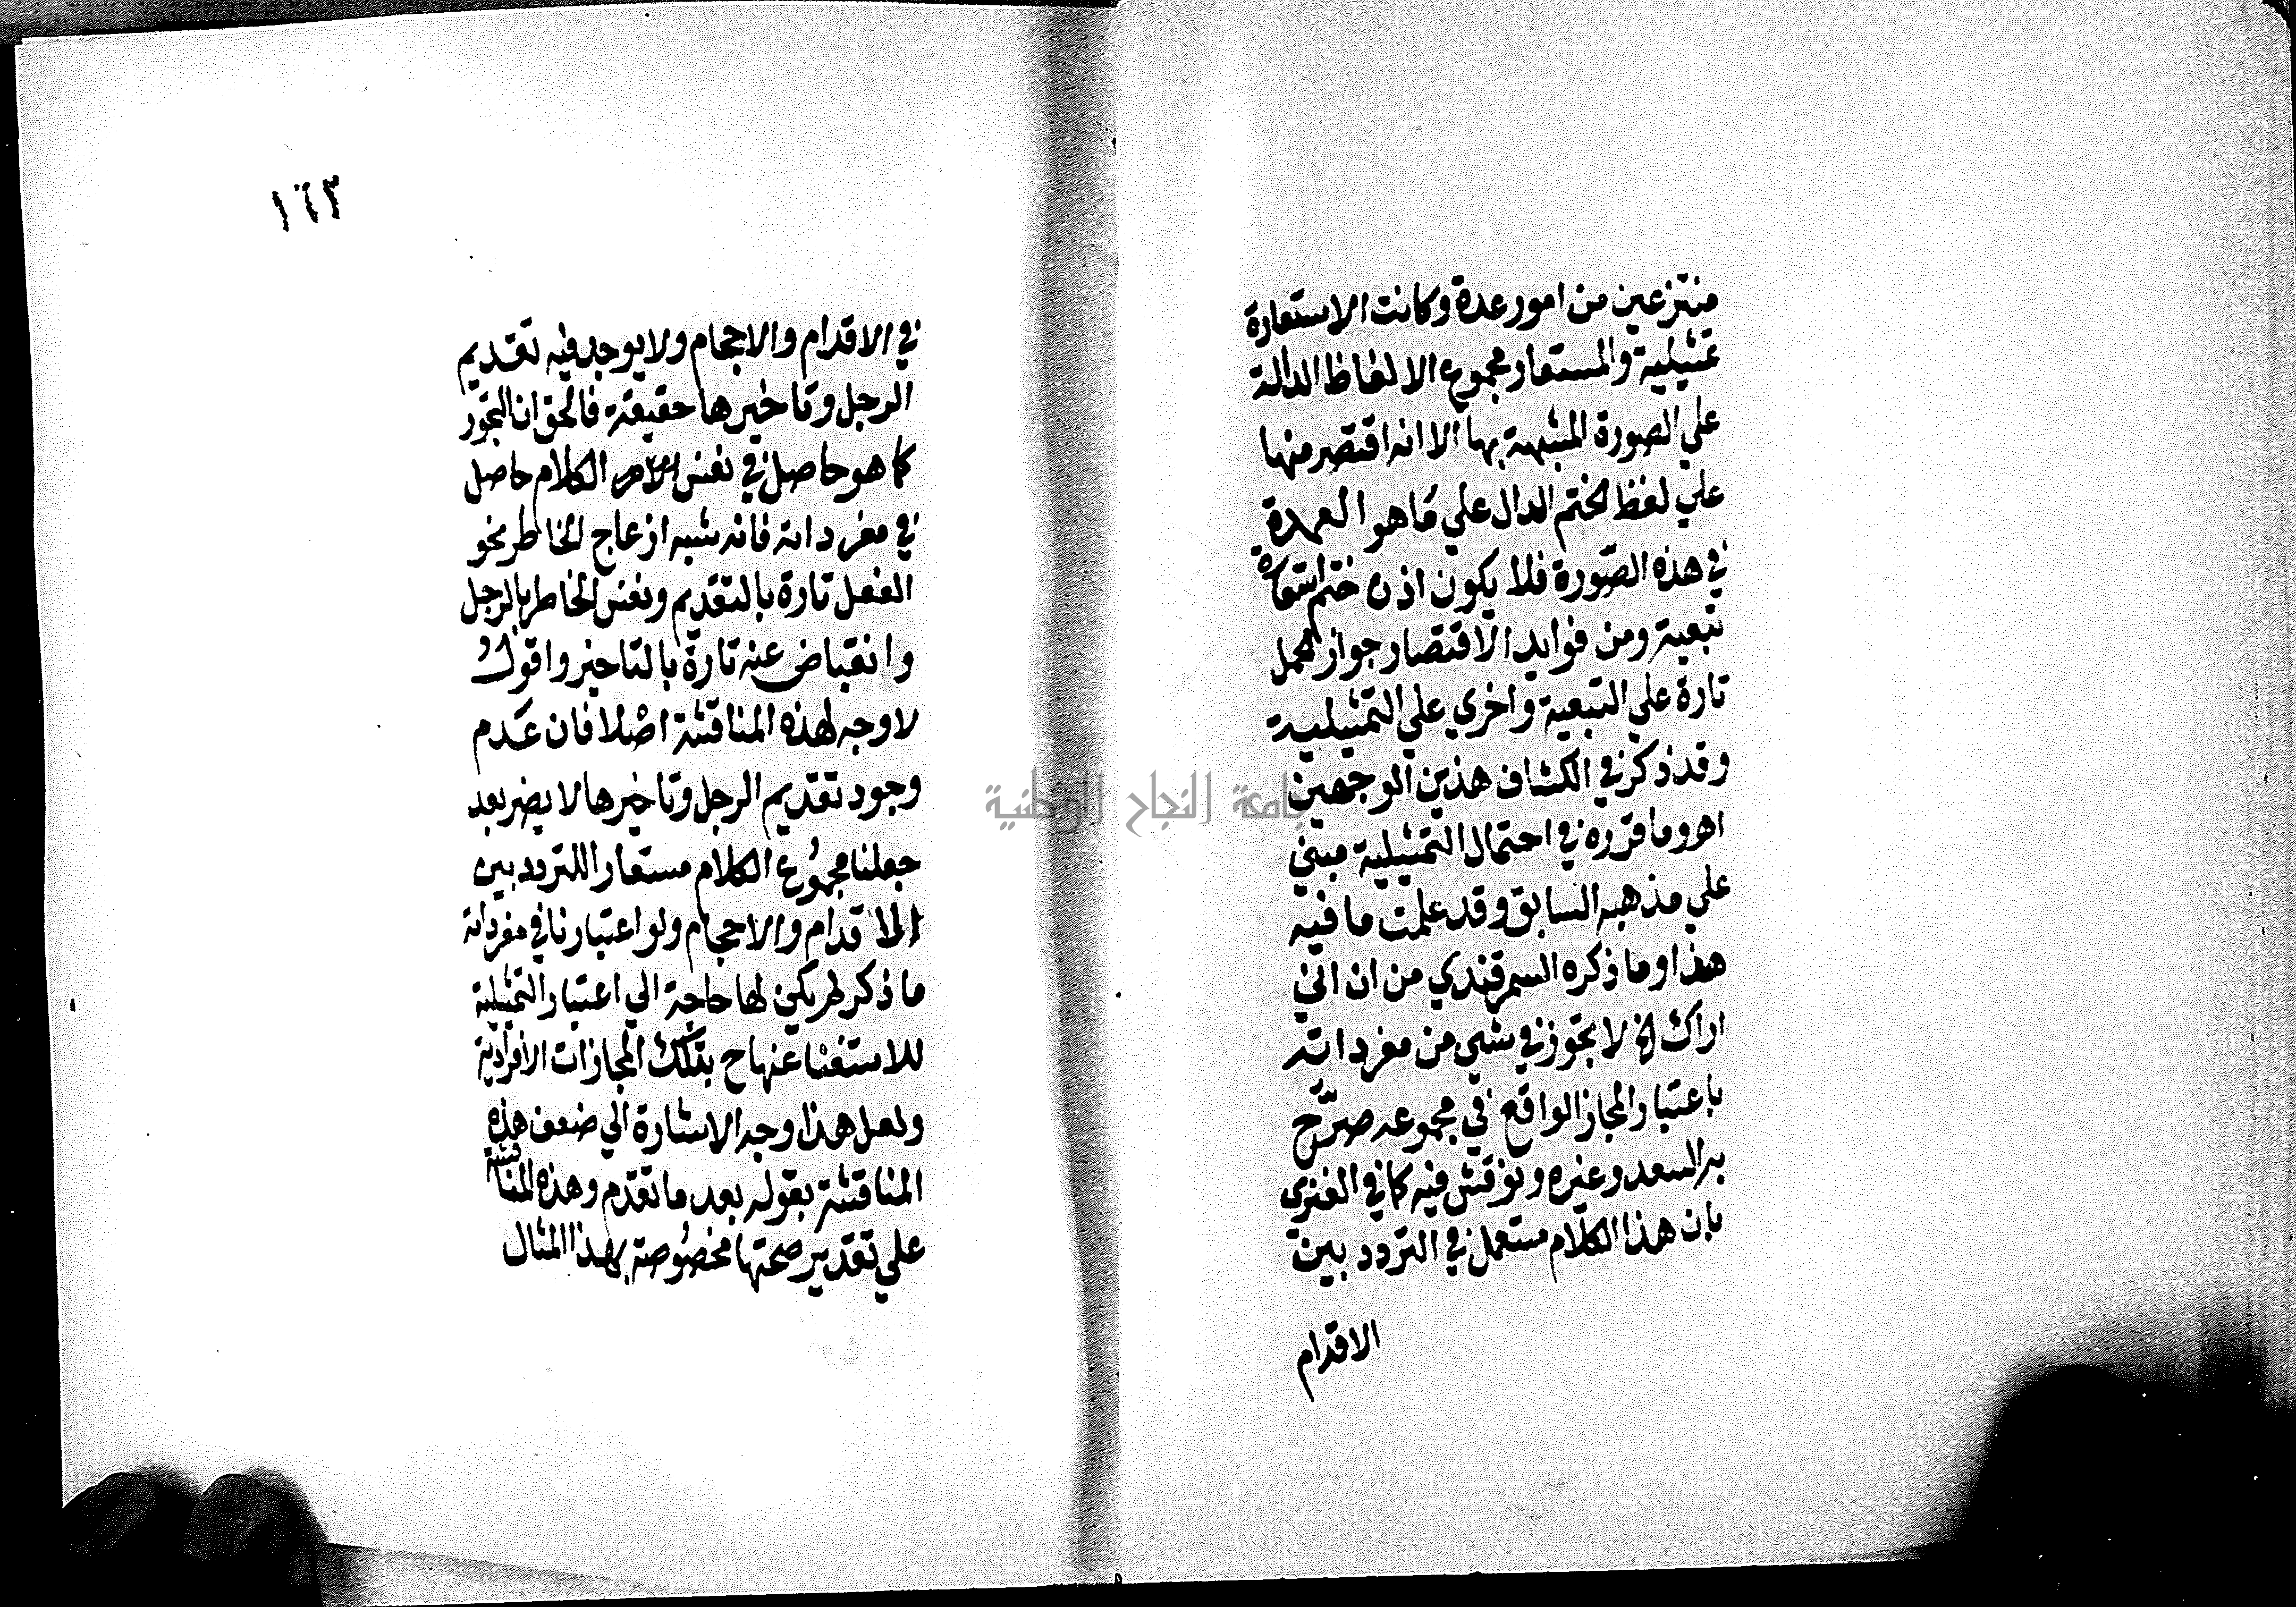 منتزعين من امور عدة وكانت الاستعارة
تمثيلية والمستعار مجموع الالفاظ الدالة
علي الصورة المشبهة بها الا انه اقتصر منها
علي لفظ الختم الدال علي ما هو العمدة
في هذه الصورة فلا يكون اذن ختم استعارة
تبعية ومن فوايد الاقتصار جواز الحمل
تارة علي التبعية واخري علي التمثيلية
وقد ذكر في الكشاف هذين الوجهين
اهو وما قرره في احتمال التمثيلية مبني
علي مذهبه السابق وقد علمت ما فيه
هذا وما ذكره السمرقندي من ان اني
اراك الخ لا تجوز في شي من مفرداته
باعتبار المجاز الواقع في مجموعه صرّح
به السعد وغيره ونوقش فيه كما في الفنري
بان هذا الكلام مستعمل في التردد بين
الاقدام
١٦٣
في الاقدام والاحجام ولا يوجد فيه تقديم
الرجل وتاخيرها حقيقة فالحق ان التجوز
كما هو حاصل في نفس الكلام حاصل
في مفرداته فانه شبه ازعاج الخاطر نحو
الفعل تارة بالتقديم ونفس الخاطر بالرجل
وانقباض عنه تارة بالتاخير واقول
لا وجه لهذه المناقشة اصلا فان عدم
وجود تقديم الرجل وتاخيرها لا يضر بعد
جعلنا مجموع الكلام مستعارا للتردد بين
الاقدام والاحجام ولو اعتبارنا في مفرداته
ما ذكر لم يكن لها حاجة الي اعتبار التمثيلية
للاستغنا عنها ح بتلك المجازات الافرادية
ولعل هذا وجه الاشارة الي ضعف هذه
المناقشة بقوله بعد ما تقدم وهذه المناقشة
علي تقدير صحتها مخصوصة بهذا المثال
جامعة النجاح الوطنية